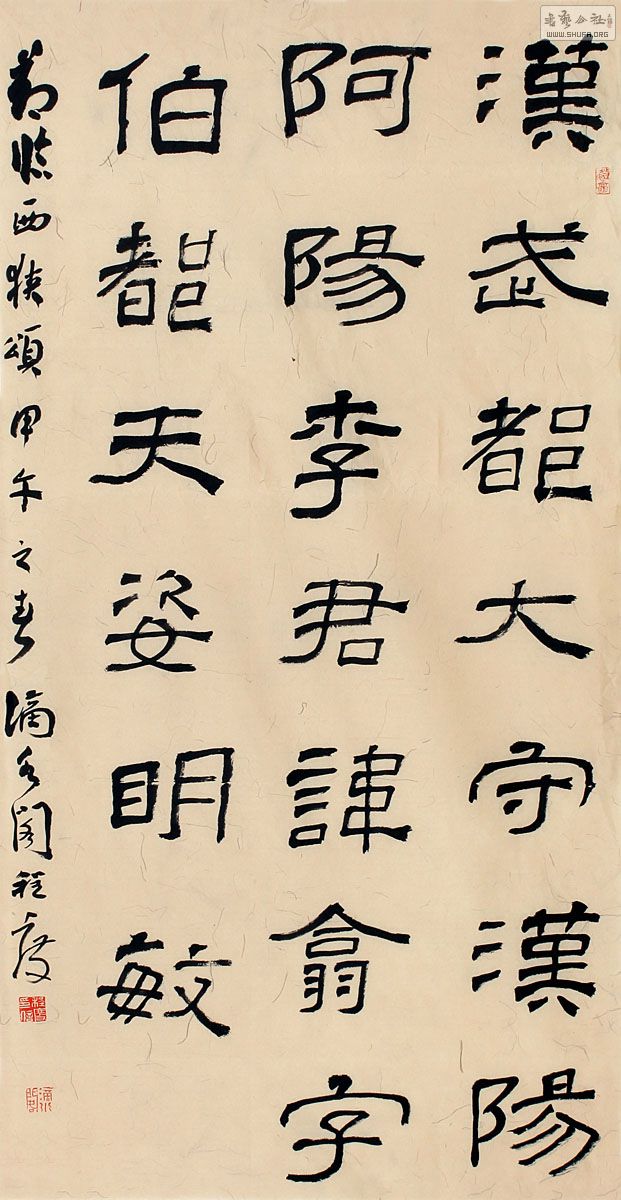 書藝公社
WWW.SHUFA.ORG
漢武都大守漢陽
阿陽李君諱翕字
伯都天姿明敏
節臨西狹頌甲午之春滴水閣程